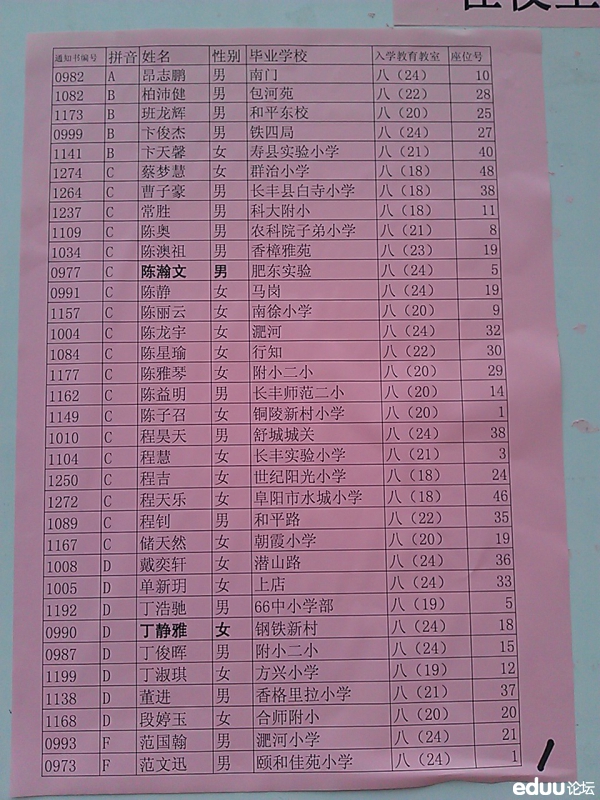 通知书编号 拼音 姓名 性别 毕业学校 入学教育教室 座位号
0982 A 昂志鹏 男 南门 八（24） 10
1082 B 柏沛健 男 包河苑 八（22） 28
1173 B 班龙辉 男 和平东校 八（20） 25
0999 B 卞俊杰 男 铁四局 八（24） 27
1141 B 卞天馨 女 寿县实验小学 八（21） 40
1274 C 蔡梦慧 女 群治小学 八（18） 48
1264 C 曹子豪 男 长丰县白寺小学 八（18） 38
1237 C 常胜 男 科大附小 八（18） 11
1109 C 陈奥 男 农科院子弟小学 八（21） 8
1034 C 陈澳祖 男 香樟雅苑 八（23） 19
0977 C 陈瀚文 男 肥东实验 八（24） 5
0991 C 陈静 女 马岗 八（24） 19
1157 C 陈丽云 女 南徐小学 八（20） 9
1004 C 陈龙宇 女 淝河 八（24） 32
1084 C 陈星瑜 女 行知 八（22） 30
1177 C 陈雅琴 女 附小二小 八（20） 29
1162 C 陈益明 男 长丰师范二小 八（20） 14
1149 C 陈子召 女 铜陵新村小学 八（20） 1
1010 C 程昊天 男 舒城城关 八（24） 38
1104 C 程慧 女 长丰实验小学 八（21） 3
1250 C 程吉 女 世纪阳光小学 八（18） 24
1272 C 程天乐 女 阜阳市水城小学 八（18） 46
1089 C 程钊 男 和平路 八（22） 35
1167 C 储天然 女 朝霞小学 八（20） 19
1008 D 戴奕轩 女 潜山路 八（24） 36
1005 D 单新玥 女 上店 八（24） 33
1192 D 丁浩驰 男 66中小学部 八（19） 5
0990 D 丁静雅 女 钢铁新村 八（24） 18
0987 D 丁俊晖 男 附小二小 八（24） 15
1199 D 丁淑琪 女 方兴小学 八（19） 12
1138 D 董进 男 香格里拉小学 八（21） 37
1168 D 段婷玉 女 合师附小 八（20） 20
0993 F 范国翰 男 淝河小学 八（24） 21
0973 F 范文迅 男 颐和佳苑小学 八（24） 1
eduu论坛